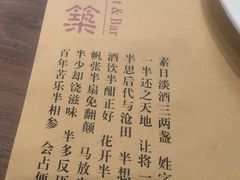 築
t & Bar
素日淡酒三两盏 姓字
一半还之天地 让将一
半思后代与沧田 半想
酒饮半酣正好 花开半
帆张半扇免翻颠 马放
半少却饶滋味 半多反厌
百年苦乐半相参 会占便